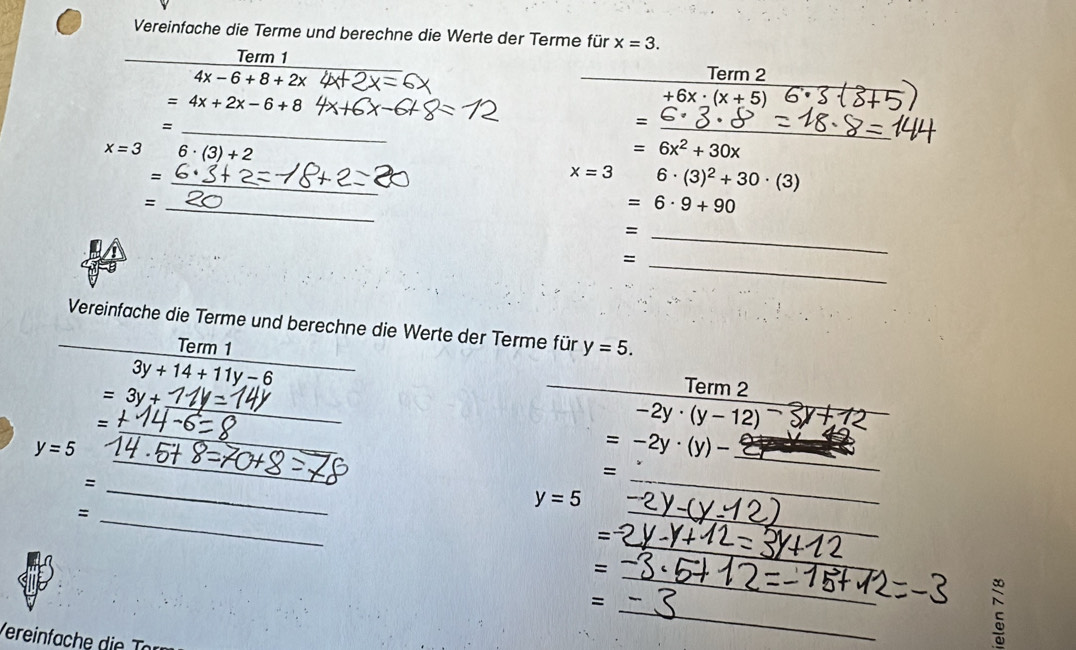 Vereinfache die Terme und berechne die Werte der Terme für x = 3.
Term 1
4x − 6 + 8 + 2x 4x+2x=6x
= 4x + 2x − 6 + 8 4x+6x-6+8=12
=
x = 3 6 · (3) + 2
= 6·3+2=18+2=20
= 20
Term 2
+6x · (x + 5) 6·3(3+5)
= 6·3·8 =18·8=144
= 6x² + 30x
x = 3 6 · (3)² + 30 · (3)
= 6 · 9 + 90
=
=
Vereinfache die Terme und berechne die Werte der Terme für y = 5.
Term 1
3y + 14 + 11y − 6
= 3y + 11y=14y
= +14-6=8
y = 5 14·5+8=70+8=78
=
=
Term 2
−2y · (y − 12) -3y+12
= −2y · (y) −
=
y = 5 -2y-(y-12)
= -2y-y+12=3y+12
= -3·5+12=-15+12=-3
= -3
ielen 7/8
Vereinfache die